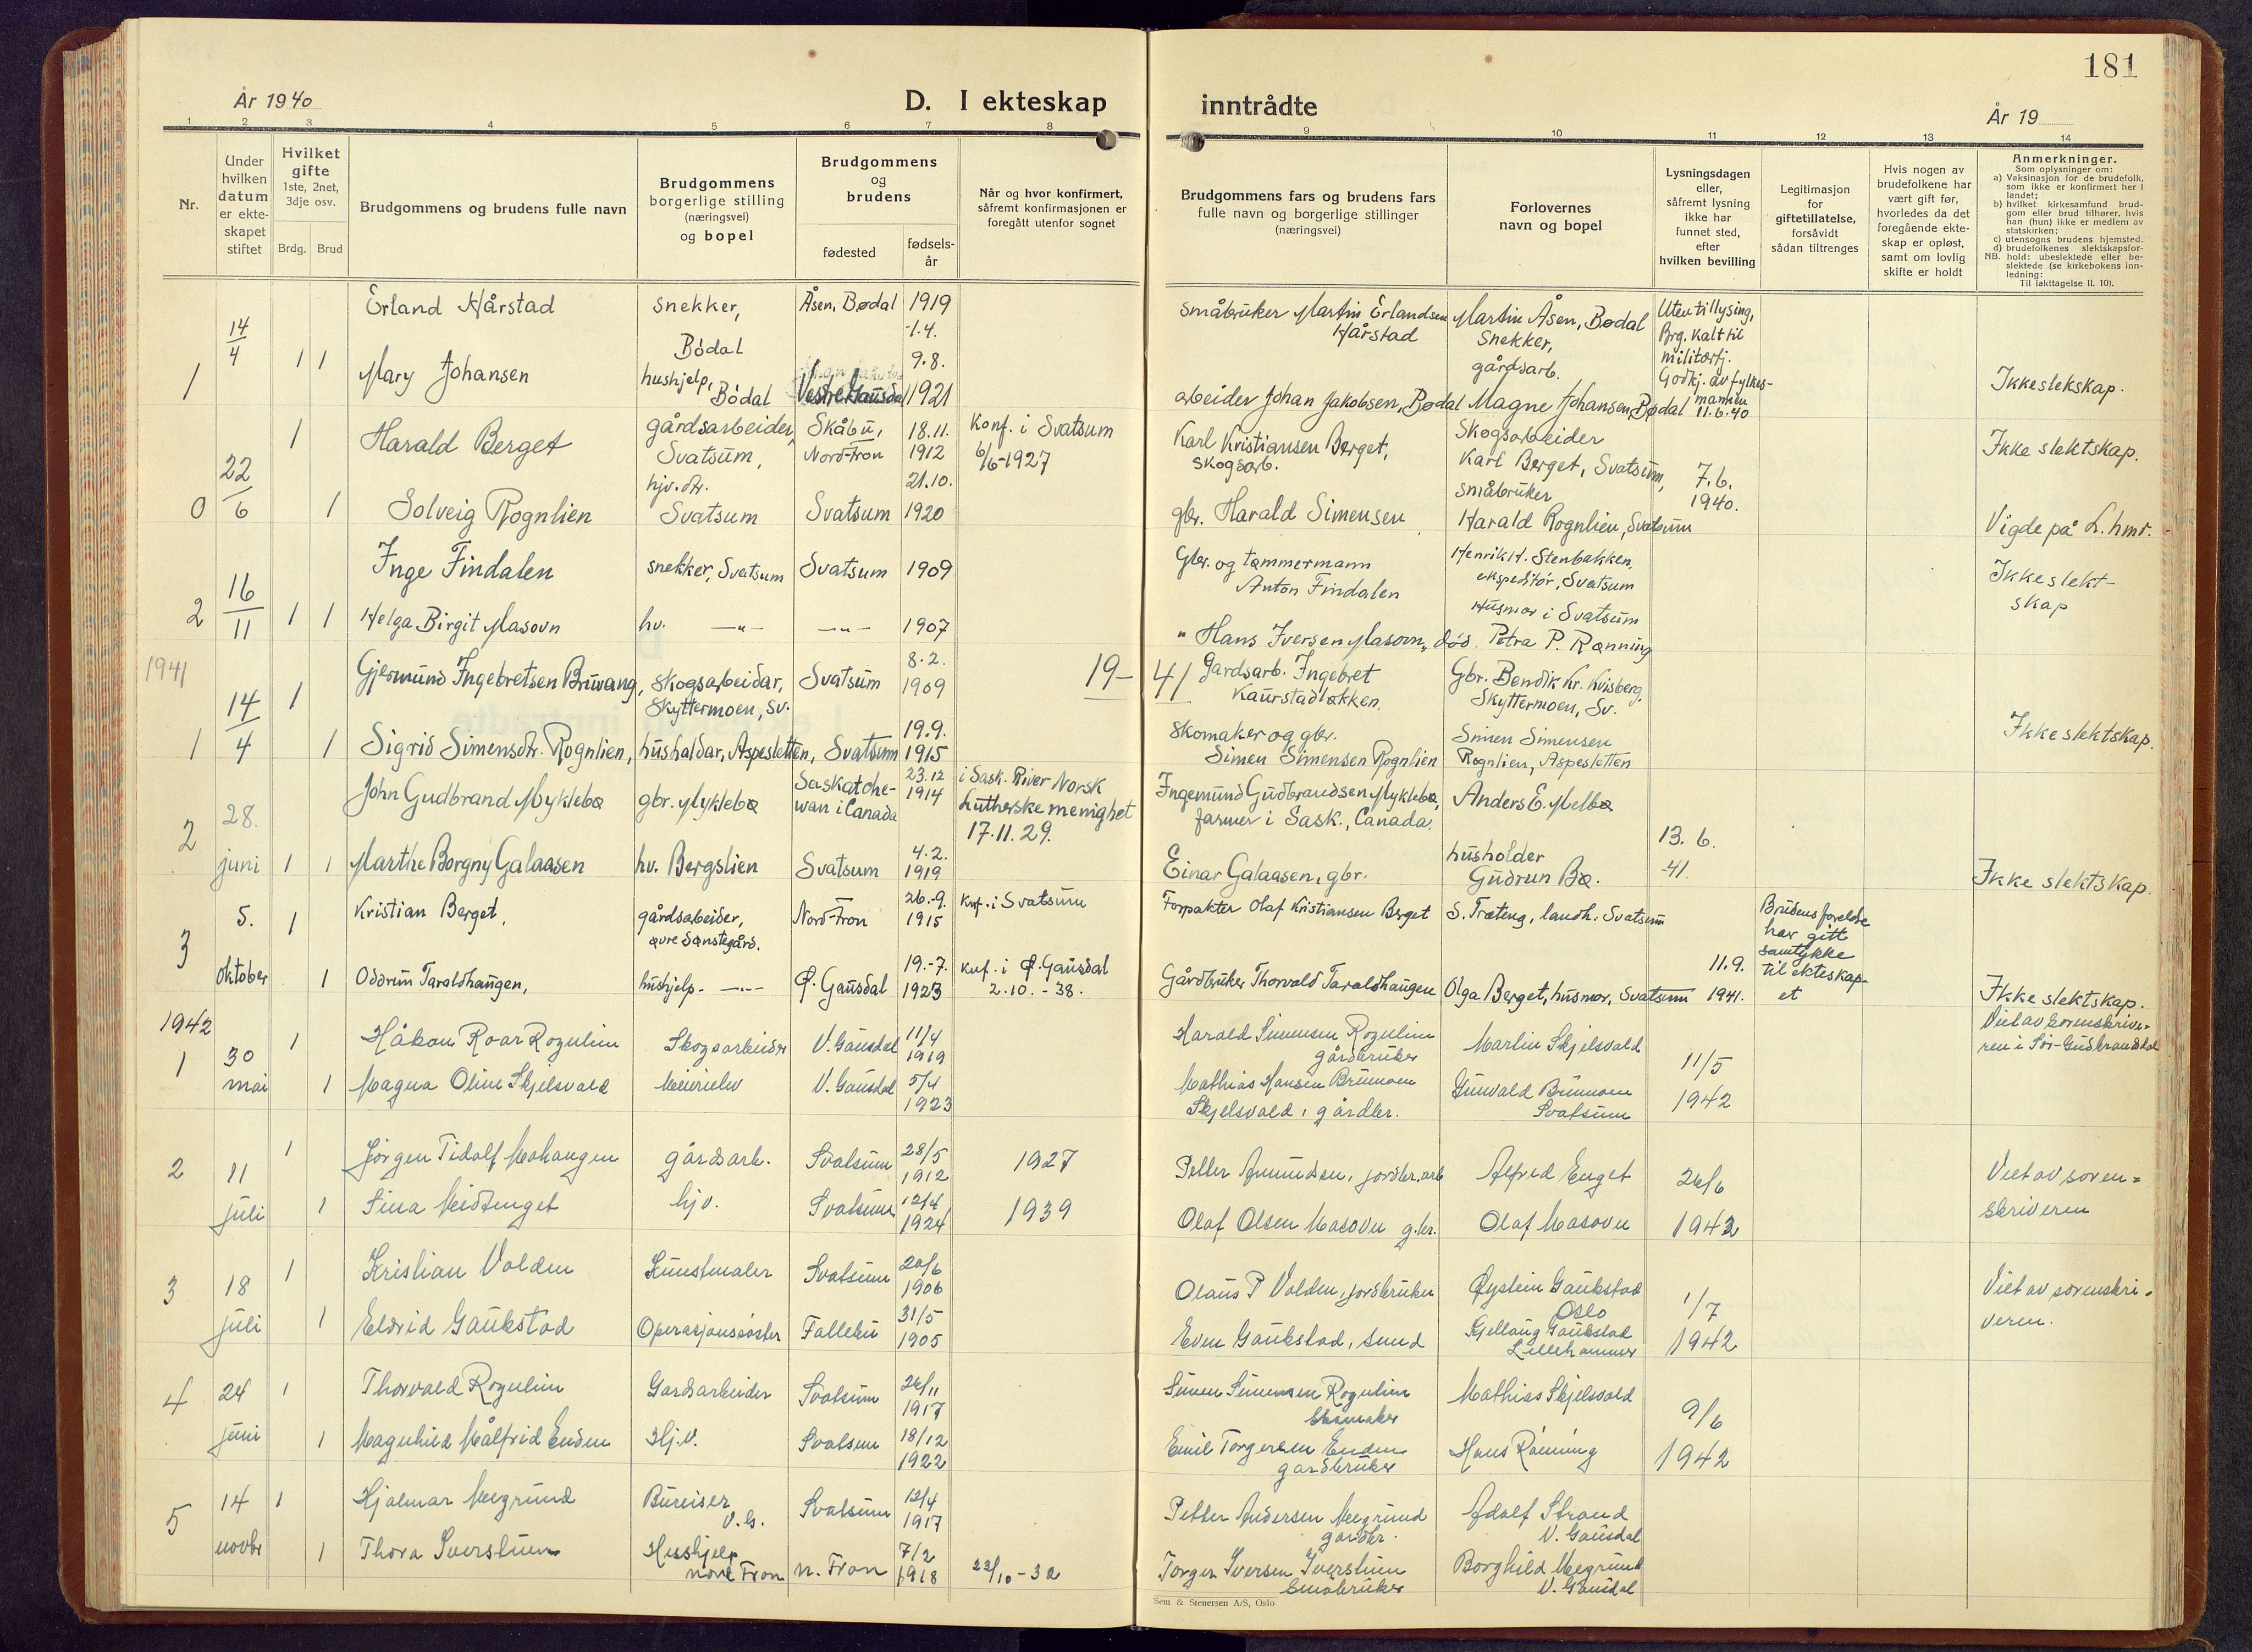 181
År 1940
D. I ekteskap
inntrådte
År 19
1
2
3
4
5
6
7
8
9
10
11
12
13
14
Nr.
Under
hvilken
datum
er ekte-
skapet
stiftet
Hvilket
gifte
1ste, 2net,
3dje osv.
Brdg.
Brud
Brudgommens og brudens fulle navn
Brudgommens
borgerlige stilling
(næringsvei)
og bopel
Brudgommens
og
brudens
fødested
fødsels-
år
Når og hvor konfirmert,
såfremt konfirmasjonen er
foregått utenfor sognet
Brudgommens fars og brudens fars
fulle navn og borgerlige stillinger
(næringsvei)
Forlovernes
navn og bopel
Lysningsdagen
eller,
såfremt lysning
ikke har
funnet sted,
efter
hvilken bevilling
Legitimasjon
for
giftetillatelse,
forsåvidt
sådan tiltrenges
Hvis nogen av
brudefolkene har
vært gift før,
hvorledes da det
foregående ekte-
skap er opløst,
samt om lovlig
skifte er holdt
Anmerkninger.
Som oplysninger om:
a) Vaksinasjon for de brudefolk,
som ikke er konfirmert her i
landet;
b) hvilket kirkesamfund brud-
gom eller brud tilhører, hvis
han (hun) ikke er medlem av
statskirken;
c) utensogns brudens hjemsted.
d) brudefolkenes slektskapsfor-
NB. hold: ubeslektede eller be-
slektede (se kirkebokens inn-
ledning:
Til iakttagelse II. 10).
1
14/4
1 1
Erland Hårstad
snekker,
Bødal
Åsen, Bødal
1919
1.4.
småbruker Martin Erlandsen
Hårstad
Martin Åsen, Bødal
Snekker,
gårdsarb.
Uten tillysing,
Brg. kalt til
militærtj.
Godkj. av fylkes-
mannen
11.6.40
Mary Johansen
hushjelp,
Bødal
Vestre Gausdal
9.8.
1921
arbeider Johan Jakobsen, Bødal
Magne Johansen, Bødal
Ikke slekskap.
0
22/6
1
Harald Berget
gårdsarbeider,
Svatsum,
Skåbu,
Nord-Fron
18.11.
1912
Konf. i Svatsum
6/6-1927
Karl Kristiansen Berget,
skogsarb.
Skogsarbeider
Karl Berget, Svatsum,
7.6.
1940.
Ikke slektskap.
1
Solveig Rognlien
hjv. dtr.
Svatsum
Svatsum
21.10.
1920
gbr. Harald Simensen
småbruker
Harald Rognlien, Svatsum
Vigde på L.hmr.
2
16/11
1 1
Inge Findalen
snekker, Svatsum
Svatsum
1909
Gbr. og tømmermann
Anton Findalen
Henrik H. Stenbakken,
ekspeditør, Svatsum
Ikke slekt-
skap
Helga Birgit Masovn
hv. —"—
—"—
1907
" Hans Iversen Masovn, død.
Husmor i Svatsum
Petra P. Rønning
1941
19-41
1
14/4
1
Gjermund Ingebretsen Bruvang,
skogsarbeidar,
Skyttermoen, Sv.
Svatsum
8.2.
1909
Gardsarb. Ingebret
Kaurstadløkken
Gbr. Bendik Kr. Kvisberg,
Skyttermoen, Sv.
1
Sigrid Simensdtr. Rognlien,
husholdar, Aspesletten,
Svatsum
19.9.
1915
Skomaker og gbr.
Simen Simensen Rognlien
Simen Simensen
Rognlien, Aspesletten
Ikke slektskap.
2
28.
juni
1 1
John Gudbrand Myklebø
gbr. Myklebø
Saskatche-
wan i Canada
23.12
1914
i Sask. River Norsk
Lutherske menighet
17.11.29.
Ingemund Gudbrandsen Myklebø,
farmer i Sask., Canada.
Anders E. Melbø
13.6.
-41.
Marthe Borgny Galaasen
hv. Bergslien
Svatsum
4.2.
1919
Einar Galaasen, gbr.
husholder
Gudrun Bø.
Ikke slektskap.
3
5.
oktober
1
Kristian Berget,
gårdsabeider,
øvre Sønstegård.
Nord-Fron
26.-9.
1915
Knf. i Svatsum
Forpakter Olaf Kristiansen Berget
S. Træteng, landh. Svatsum
11.9.
1941.
Brudens foreldre
har gitt
samtykke
til ekteskap-
et
1
Oddrun Taraldhaugen,
hushjelp. —"—
Ø. Gausdal
19.-7.
1923
Knf. i Ø. Gausdal
2.10.-38.
Gårdbruker Thorvald Taraldhaugen
Olga Berget, husmor, Svatsum
Ikke slektskap.
1942
1
30
mai
1
Håkon Roar Rognlien
Skogsarbeider
V. Gausdal
11/4
1919
Harald Simensen Rognlien
gårdbruker
Martin Skjelsvold
11/5
1942
Viet av sorenskrive-
ren i Sør-Gudbrandsdal
1
Magna Oline Skjelsvold
Meierielev
V. Gausdal
5/4
1923
Mathias Hansen Brumoen
Skjelsvold, gårdbr.
Gunvald Brumoen
Svatsum
2
11
juli
1
Jørgen Tidolf Mohaugen
gårdsarb.
Svatsum
28/5
1912
1927
Petter Amundsen, jordbr.arb
Alfred Enget
26/6
1942
Viet av soren-
skriveren
1
Sina Meidtenget
hjv.
Svatsum
12/4
1924
1939
Olaf Olsen Masovn g.br.
Olaf Masovn
3
18
juli
1
Kristian Volden
Kunstmaler
Svatsum
20/6
1906
Olaus P Volden, jordbruker
Øystein Gaukstad
Oslo
1/7
1942
Viet av sorenskri-
veren.
1
Eldrid Gaukstad
Operasjonssøster
Follebu
31/5
1905
Even Gaukstad, smed
Kjellaug Gaukstad
Lillehammer
4
24
juni
1
Thorvald Rognlien
Gardsarbeider
Svatsum
26/11
1917
Simen Simensen Rognlien
Skomaker
Mathias Skjelsvold
9/6
1942
1
Magnhild Målfrid Enden
Hj.v.
Svatsum
18/12
1922
Emil Torgersen Enden
gardbruker
Hans Rønning
5
14
novbr
1
Hjalmar Megrund
Bureiser
V.G.
Svatsum
12/4
1917
Petter Andersen Megrund
gardbr.
Adolf Strand
V. Gausdal
1
Thora Sverstuen
Hushjelp
nord Fron
n. Fron
7/2
1918
23/10-32
Torger Iversen Sverstuen
Småbruker
Borghild Megrund
V. Gausdal
Sem & Stenersen A/S, Oslo